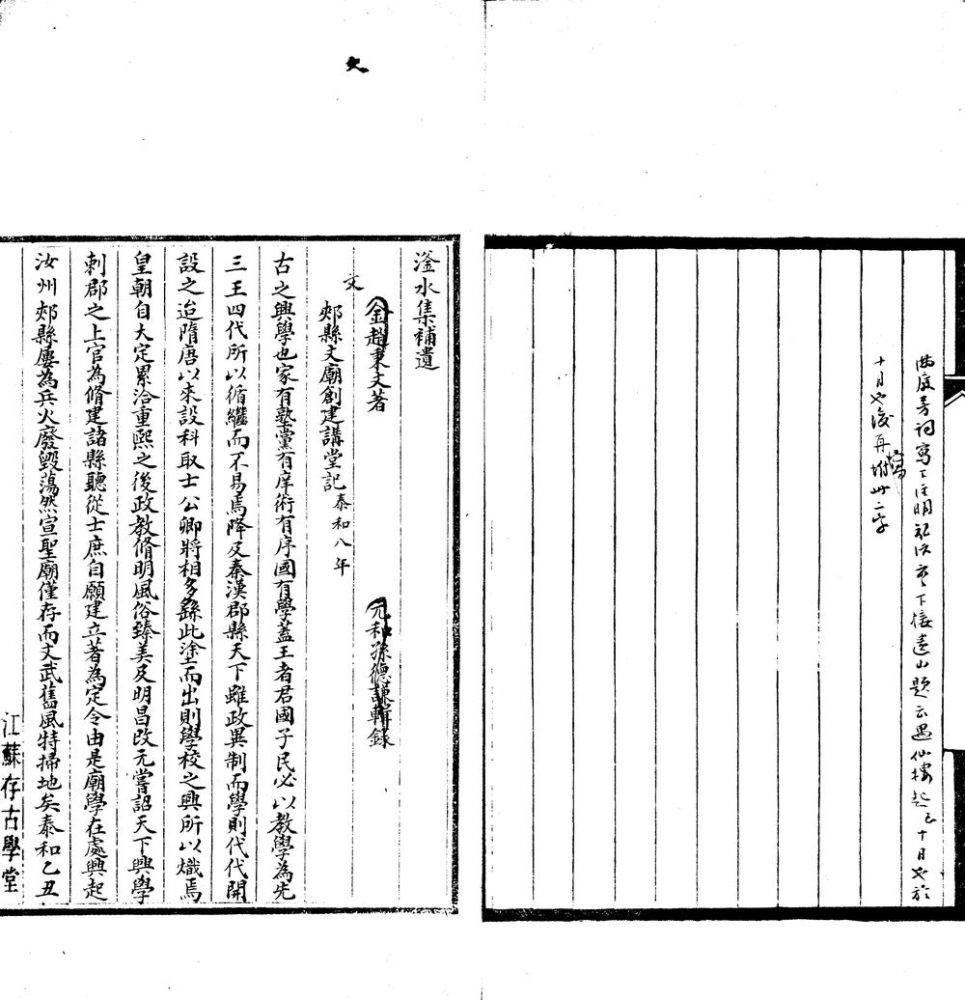 滿庭芳詞寫 明 下 遠山題云遇仙樓 十月也於
十月也後再 此二字
文
滏水集補遺
金趙秉文著
元和孫德謙輯錄
文
郟縣文廟創建講堂記泰和八年
古之興學也家有塾黨有庠術有序國有學蓋王者君國子民必以教學為先
三王四代所以循繼而不易焉降及秦漢郡縣天下雖政異制而學則代代開
設之迨隋唐以來設科取士公卿將相多繇此塗而出則學校之興所以熾焉
皇朝自大定累洽重熙之後政教脩明風俗臻美及明昌改元嘗詔天下興學
刺郡之上官為脩建諸縣聽從士庶自願建立著為定令由是廟學在處興起
汝州郟縣屢為兵火廢毀蕩然宣聖廟僅存而文武舊風特掃地矣泰和乙丑
江蘇存古學堂